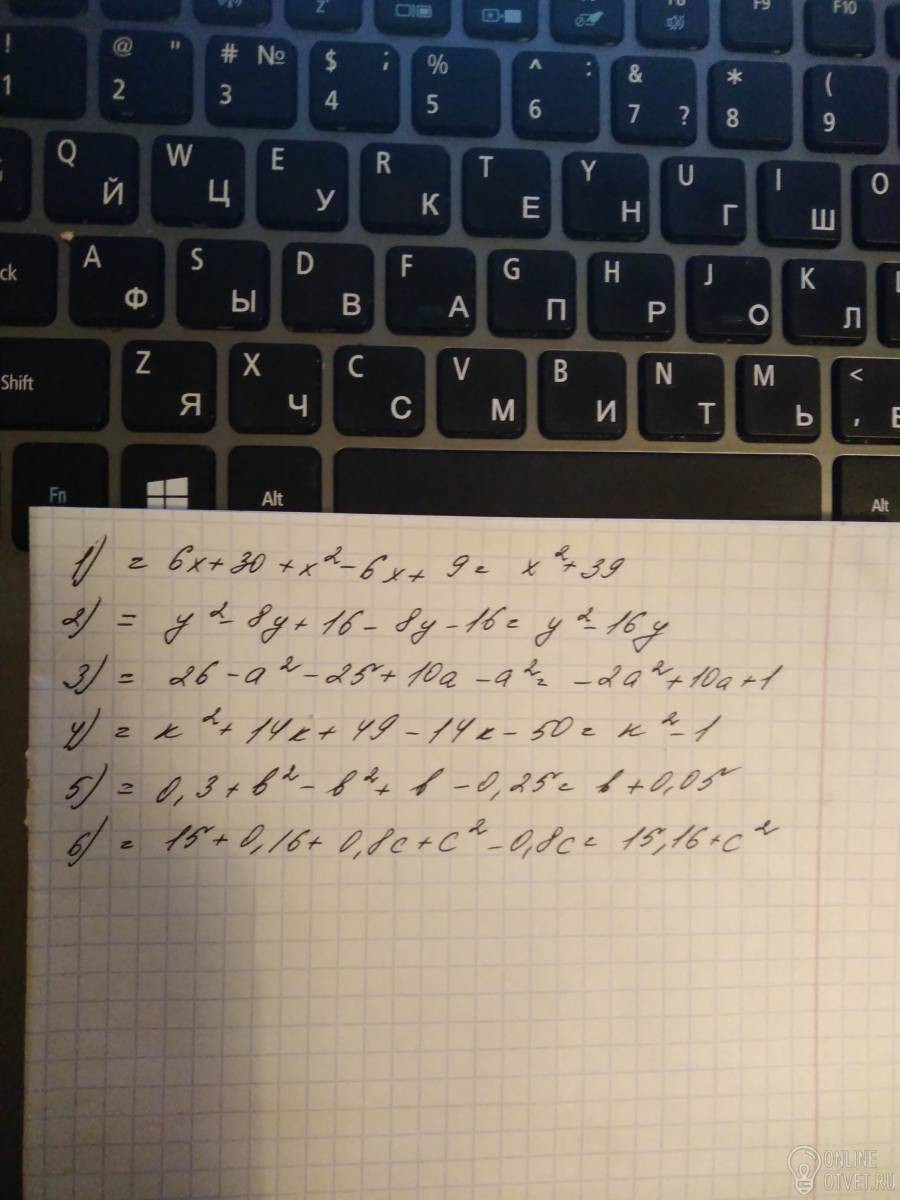 F8 F9 F10
! 1 @ " 2 # № 3 $ ; 4 % 5 ^ : 6 & 7 ? * 8 ( 9
Q Й W Ц E У R К T Е Y Н U Г I Ш O
ck A Ф S Ы D В F А G П H Р J О K Л
Shift Z Я X Ч C С V М B И N Т M Ь < ,
Fn Alt Alt
1) = 6x+30+x²-6x+9= x²+39
2) = y²-8y+16-8y-16= y²-16y
3) = 26-a²-25+10a-a²= -2a²+10a+1
4) = к²+14к+49-14к-50= к²-1
5) = 0,3+в²-в²+в-0,25= в+0,05
6) = 15+0,16+0,8c+c²-0,8c= 15,16+c²
ONLINE
OTVET.RU